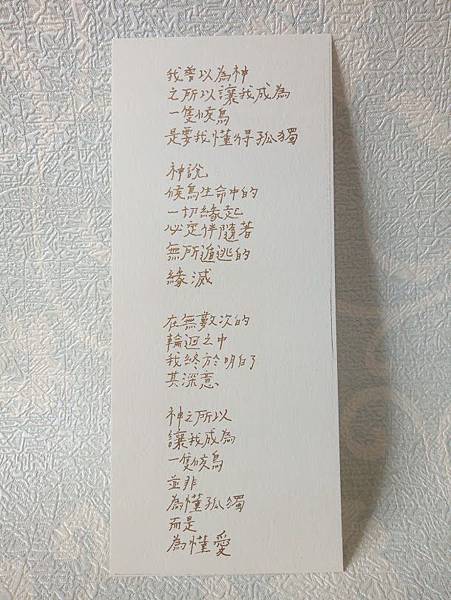 我曾以為神
之所以讓我成為
一隻候鳥
是要我懂得孤獨
神說
候鳥生命中的
一切緣起
必定伴隨著
無所遁逃的
緣滅
在無數次的
輪迴之中
我終於明白了
其深意
神之所以
讓我成為
一隻候鳥
並非
為懂孤獨
而是
為懂愛